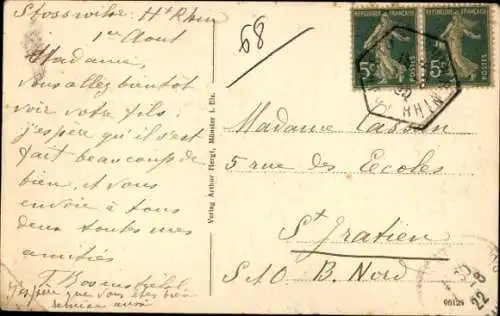 Stosswihr Ht Rhin
1er Aout
Madame,
Vous allez bientôt
voir votre fils;
j'espère qu'il s'est
fait beaucoup de
bien, et vous
envoie à tous
deux toutes mes
amitiés
que vous êtes bien
68
Verlag Arthur Hergt, Münster i. Els.
REPUBLIQUE FRANÇAISE
5c
POSTES
REPUBLIQUE FRANÇAISE
5c
POSTES
RHIN
Madame Cassan
5 rue des Ecoles
St Gratien
S. & O. B. Nord
22 8